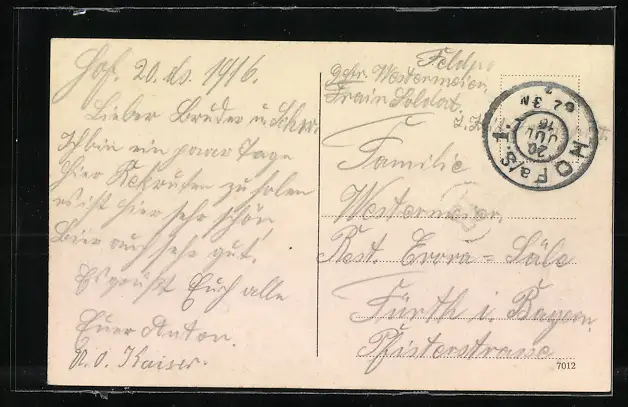 Hof. 20. ds. 1916.
Lieber Bruder u. Schw.
Ich bin ein paar Tage
hier Rekruten zu holen
es ist hier sehr schön,
Bier auch sehr gut.
Es grüßt Euch alle
Euer Anton.
N.O. Kaiser.
Feldpo
Westermeier.
Train Soldat.
HOF a/S. 1.
20 JUL 16
2-3N
Familie
Westermeier.
Rest. Erora = Säle
Fürth i. Bayern.
Pfisterstrasse
7012